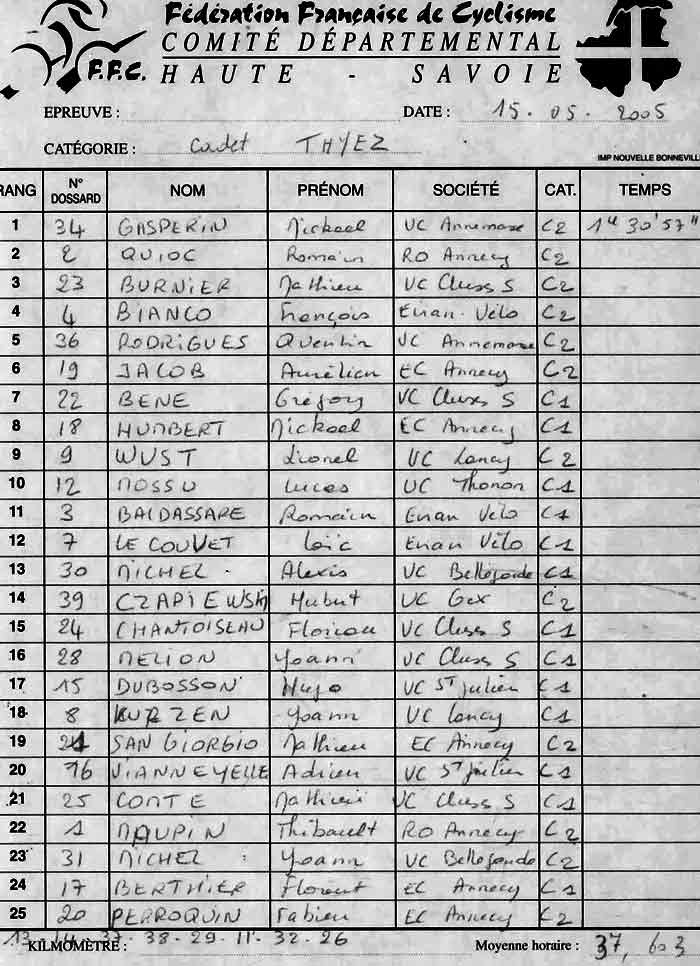 Fédération Française de Cyclisme
COMITÉ DÉPARTEMENTAL
F.F.C. HAUTE - SAVOIE
EPREUVE : DATE : 15.05.2005
CATÉGORIE : Cadet THYEZ
IMP NOUVELLE BONNEVILLE
RANG N° DOSSARD NOM PRÉNOM SOCIÉTÉ CAT. TEMPS
1 34 GASPERIN Mickael VC Annemasse C2 1H 30'57"
2 2 QUIOC Romain RO Annecy C2
3 23 BURNIER Mathieu VC Cluses S C2
4 4 BIANCO François Evian Vélo C2
5 36 RODRIGUES Quentin VC Annemasse C2
6 19 JACOB Aurélien EC Annecy C2
7 22 BENE Grégory VC Cluses S C1
8 18 HUMBERT Mickael EC Annecy C1
9 9 WUST Lionel VC Lancy C2
10 12 MOSSU Lucas UC Thonon C1
11 3 BALDASSARE Romain Evian Vélo C1
12 7 LE COUVET Loïc Evian Vélo C1
13 30 MICHEL Alexis VC Bellegarde C1
14 39 CZAPIEWSKI Hubert UC Gex C2
15 24 CHANTOISEAU Florian VC Cluses S C1
16 28 MELION Yoann VC Cluses S C1
17 15 DUBOSSON Hugo VC St Julien C1
18 8 KURZEN Yoann VC Lancy C1
19 21 SAN GIORGIO Mathieu EC Annecy C2
20 16 Adrien VC St Julien C1
21 25 COMTE Mathieu VC Cluses S C1
22 1 MAUPIN Thibault RO Annecy C2
23 31 MICHEL Yoann VC Bellegarde C2
24 17 BERTHIER Florent EC Annecy C1
25 20 PERROQUIN Fabien EC Annecy C2
13 - 14 - 37 - 38 - 29 - 11 - 32 - 26
KILMOMÈTRE : Moyenne horaire : 37,603